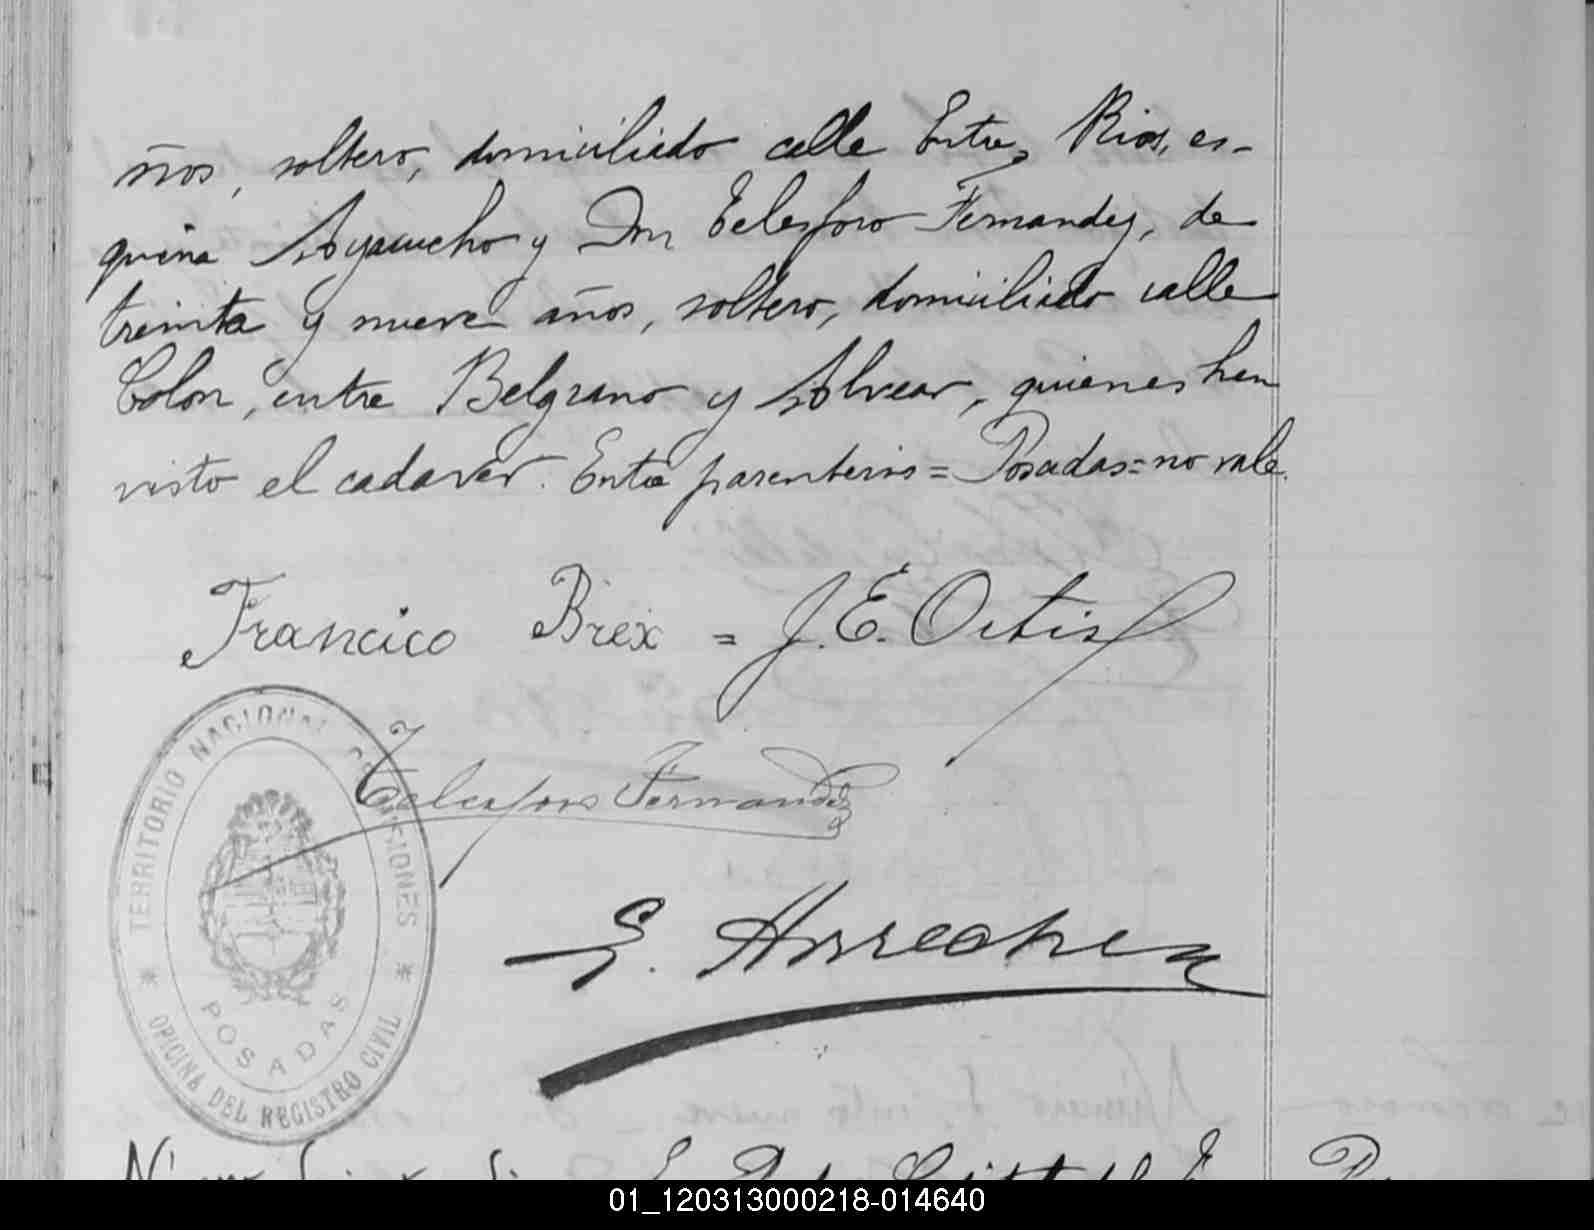 ños, soltero, domiciliado calle Entre Rios, es-
quina Ayacucho y Don Telesforo Fernandez, de
treinta y nueve años, soltero, domiciliado calle
Colon, entre Belgrano y Alvear, quienes han
visto el cadaver. Entre parentesis = Posadas = no vale.
Francico Brex = J. E. Ortiz
Telesforo Fernandez
TERRITORIO NACIONAL DE MISIONES
E. Arrechea
POSADAS
OFICINA DEL REGISTRO CIVIL
01_120313000218-014640